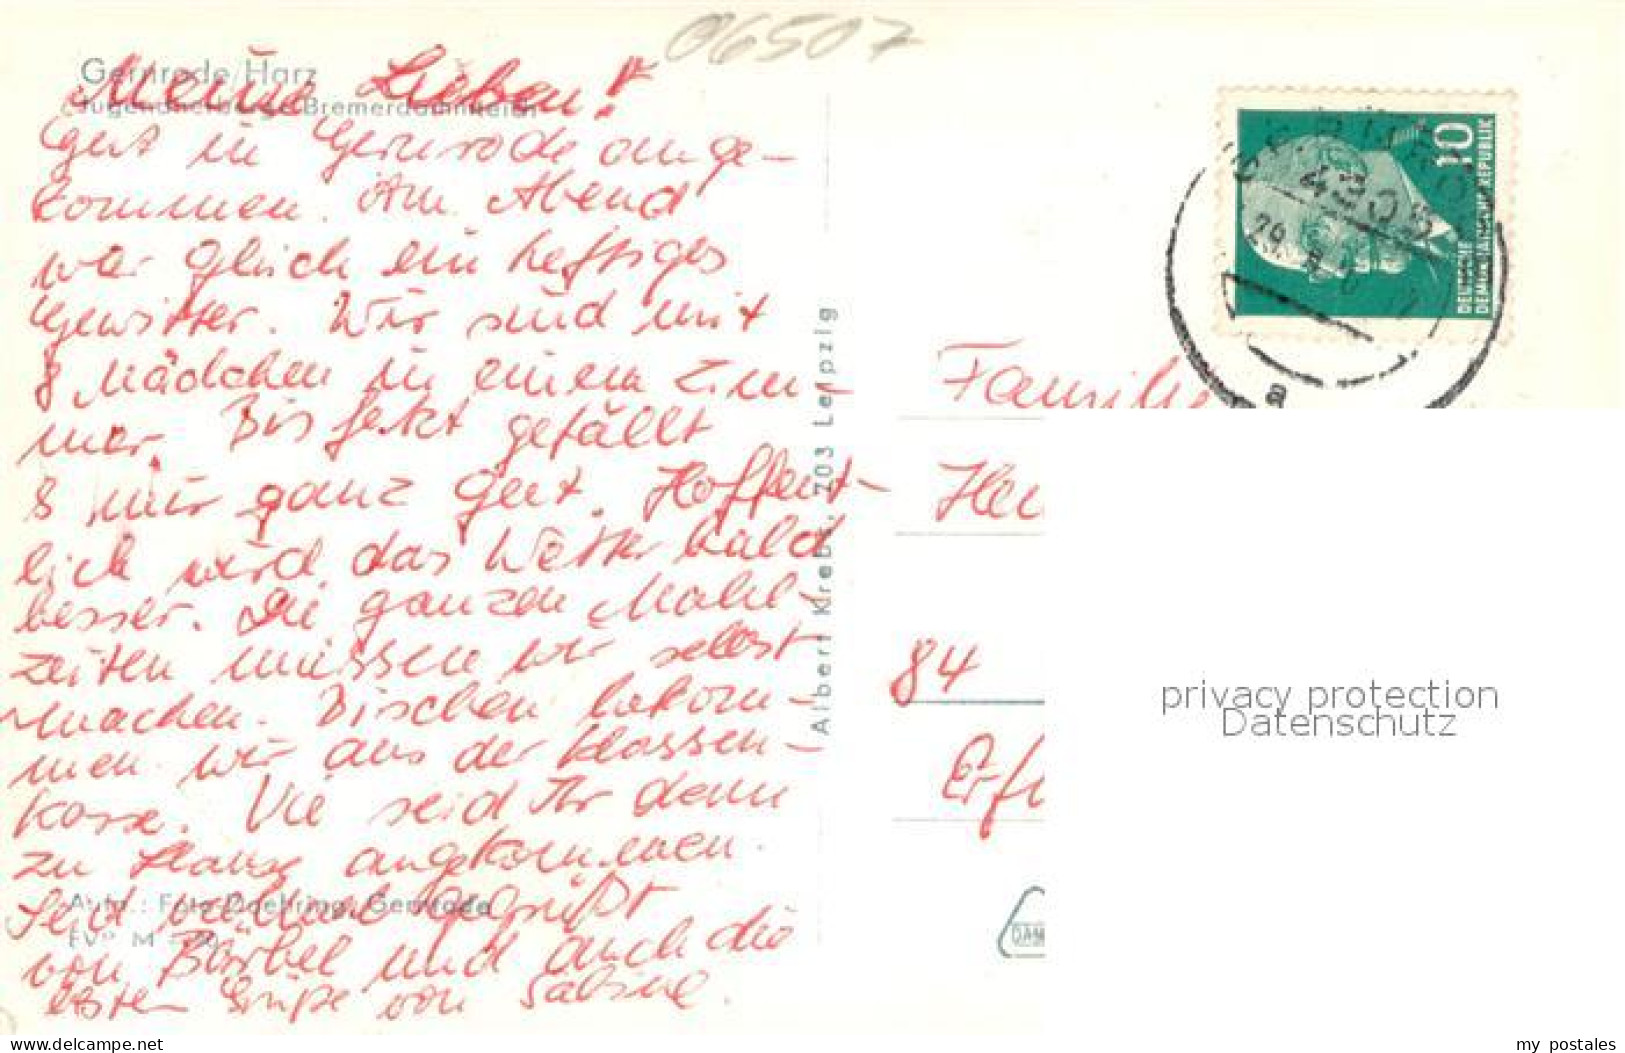 06507
Gernrode/Harz
Jugendherberge Bremerdammteich
Meine Lieben!
Gut in Gernrode ange-
kommen. Am Abend
war gleich ein heftiges
Gewitter. Wir sind mit
8 Mädchen in einem Zim-
mer. Bis jetzt gefällt
s mir ganz gut. Hoffent-
lich wird das Wetter bald
besser. Die ganzen Mahl-
zeiten müssen wir selbst
machen. Bischen bekom-
men wir aus der Klassen-
kasse. Wie seid Ihr denn
zu Hause angekommen.
Seid vielmals gegrüßt
von Bärbel und auch die
besten Grüße von Sabine.
Aufn.: Foto Daehring, Gernrode
Albert Krebs, 703 Leipzig
10
DEUTSCHE
DEMOKRATISCHE REPUBLIK
29.
a
Familie
84
privacy protection
Datenschutz
www.delcampe.net
my_postales